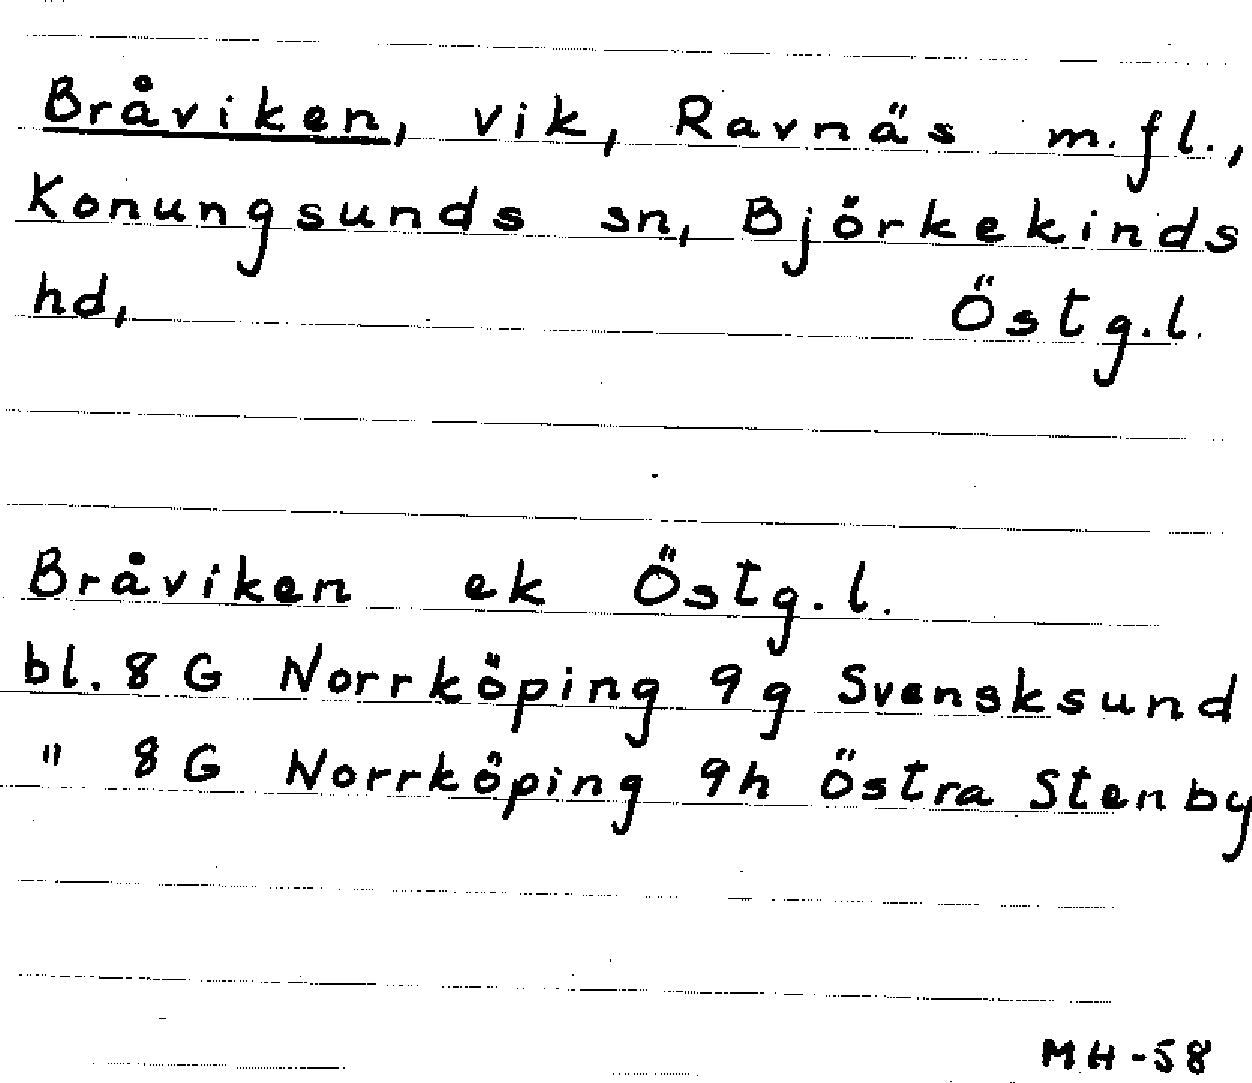 Bråviken, vik, Ravnäs m.fl.,
Konungsunds sn, Björkekinds
hd, Östg.l.
Bråviken ek Östg.l.
bl. 8 G Norrköping 9g Svensksund
" 8 G Norrköping 9h Östra Stenby
MH-58